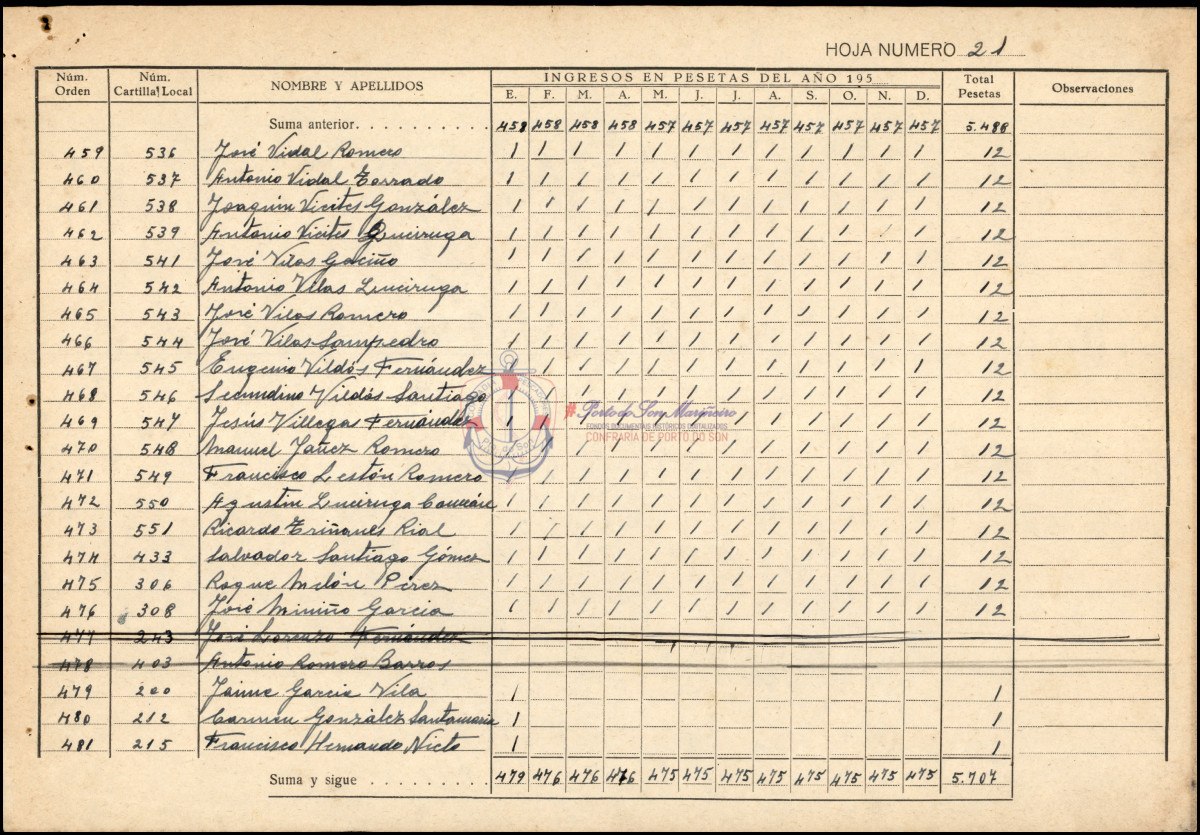 HOJA NUMERO 21
Núm. Orden Núm. Cartilla Local NOMBRE Y APELLIDOS INGRESOS EN PESETAS DEL AÑO 195 Total Pesetas Observaciones
E. F. M. A. M. J. J. A. S. O. N. D.
Suma anterior. 458 458 458 458 457 457 457 457 457 457 457 457 5.488
459 536 José Vidal Romero 1 1 1 1 1 1 1 1 1 1 1 1 12
460 537 Antonio Vidal Torrado 1 1 1 1 1 1 1 1 1 1 1 1 12
461 538 Joaquin Vicites González 1 1 1 1 1 1 1 1 1 1 1 1 12
462 539 Antonio Vicites Queiruga 1 1 1 1 1 1 1 1 1 1 1 1 12
463 541 José Vilas Gaciño 1 1 1 1 1 1 1 1 1 1 1 1 12
464 542 Antonio Vilas Queiruga 1 1 1 1 1 1 1 1 1 1 1 1 12
465 543 José Vilas Romero 1 1 1 1 1 1 1 1 1 1 1 1 12
466 544 José Vilas Sampedro 1 1 1 1 1 1 1 1 1 1 1 1 12
467 545 Eugenio Vildós Fernández 1 1 1 1 1 1 1 1 1 1 1 1 12
468 546 Secundino Vildós Santiago 1 1 1 1 1 1 1 1 1 1 1 1 12
469 547 Jesús Villegas Fernández 1 1 1 1 1 1 1 1 1 1 1 1 12
470 548 Manuel Yañez Romero 1 1 1 1 1 1 1 1 1 1 1 1 12
471 549 Francisco Lestón Romero 1 1 1 1 1 1 1 1 1 1 1 1 12
472 550 Agustin Queiruga 1 1 1 1 1 1 1 1 1 1 1 1 12
473 551 Ricardo Triñanes Rial 1 1 1 1 1 1 1 1 1 1 1 1 12
474 433 Salvador Santiago Gómez 1 1 1 1 1 1 1 1 1 1 1 1 12
475 306 Roque Melón Pérez 1 1 1 1 1 1 1 1 1 1 1 1 12
476 308 José Miniño Garcia 1 1 1 1 1 1 1 1 1 1 1 1 12
477 243 José Lorenzo Fernández
478 403 Antonio Romero Barros
479 200 Jaime Garcia Vila 1 1
480 212 Carmen González Santamaria 1 1
481 215 Francisco Hernando Nieto 1 1
Suma y sigue 479 476 476 476 475 475 475 475 475 475 475 475 5.707
#Porto do Son Mariñeiro
FONDOS DOCUMENTAIS HISTÓRICOS DIXITALIZADOS
CONFRARIA DE PORTO DO SON